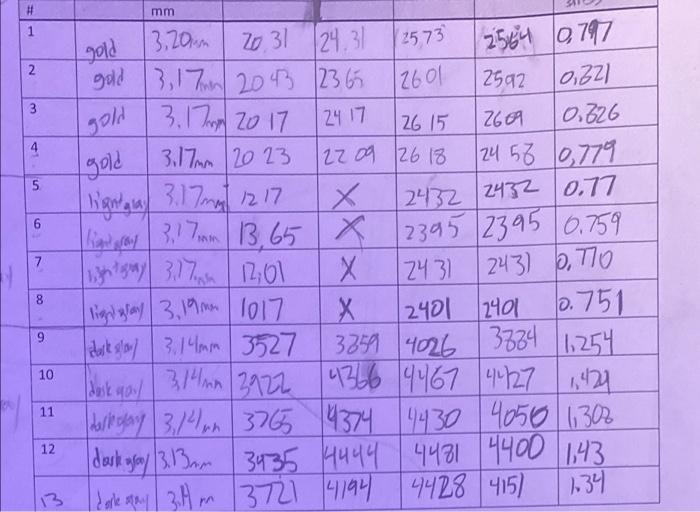 # mm
1 gold 3,20mm 20.31 24.31 25,73 2564 0,797
2 gold 3,17mm 20 43 2365 2601 2592 0,821
3 gold 3.17mm 20 17 24 17 26 15 2609 0.826
4 gold 3.17mm 20 23 22 09 26 18 24 58 0,779
5 light gray 3.17mm 12 17 X 2432 2432 0.77
6 light gray 3,17mm 13,65 X 2395 2395 0.759
7 light gray 3,17mm 12,01 X 24 31 2431 0,770
8 light gray 3,19mm 1017 X 2401 2401 0.751
9 dark gray 3.14mm 3527 3859 4026 3884 1.254
10 dark gray 3,14mm 3922 4366 4467 4427 1,429
11 dark gray 3,14mm 3765 4374 4430 4050 1,308
12 dark gray 3.13mm 3435 4444 4481 4400 1.43
13 dark gray 3721 4194 4428 4151 1.34